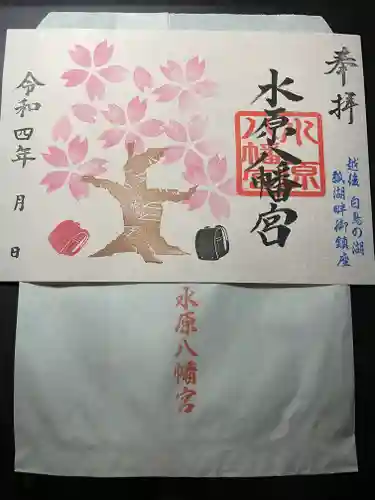 奉拝
越後 白鳥の湖
瓢湖畔御鎮座
水原八幡宮
水原
八幡宮
令和四年 月 日
水原八幡宮